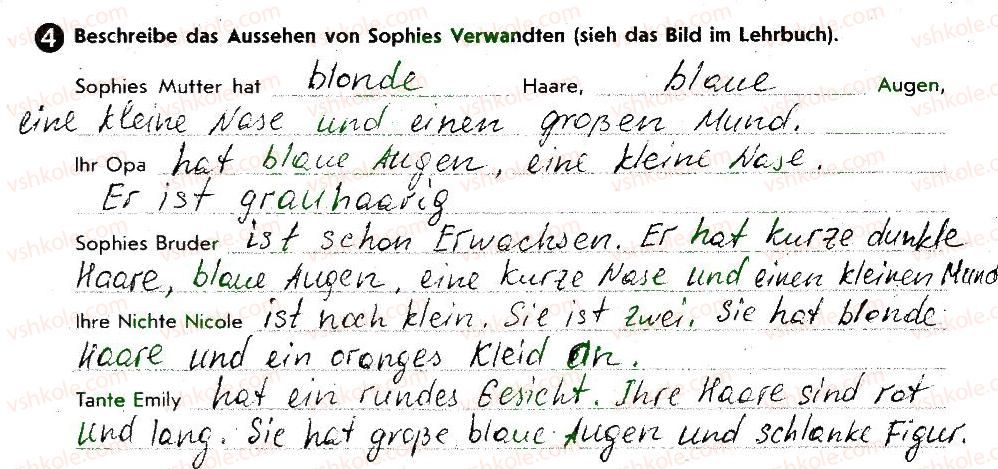 4 Beschreibe das Aussehen von Sophies Verwandten (sieh das Bild im Lehrbuch).
Sophies Mutter hat blonde Haare, blaue Augen,
eine kleine Nase und einen großen Mund.
Ihr Opa hat blaue Augen, eine kleine Nase.
Er ist grauhaarig
Sophies Bruder ist schon Erwachsen. Er hat kurze dunkle
Haare, blaue Augen, eine kurze Nase und einen kleinen Mund
Ihre Nichte Nicole ist noch klein. Sie ist zwei. Sie hat blonde
Haare und ein oranges Kleid an.
Tante Emily hat ein rundes Gesicht. Ihre Haare sind rot
und lang. Sie hat große blaue Augen und schlanke Figur.
vshkole.com